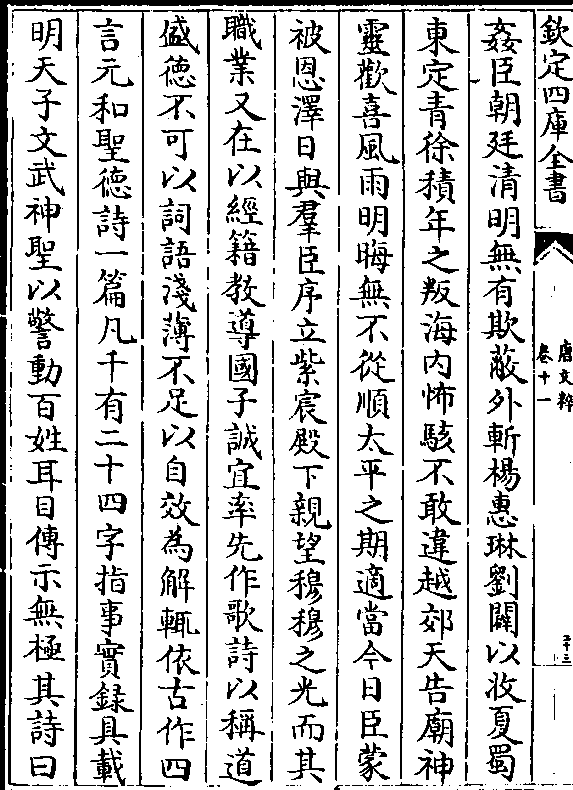 欽定四庫全書
唐文粹
卷十一
二十三
姦臣朝廷清明無有欺蔽外斬楊惠琳劉闢以收夏蜀
東定青徐積年之叛海内怖駭不敢違越郊天告廟神
靈歡喜風雨明晦無不從順太平之期適當今日臣蒙
被恩澤日與羣臣序立紫宸殿下親望穆穆之光而其
職業又在以經籍教導國子誠宜率先作歌詩以稱道
盛徳不可以詞語淺薄不足以自效為解輒依古作四
言元和聖徳詩一篇凡千有二十四字指事實録具載
明天子文武神聖以警動百姓耳目傳示無極其詩曰